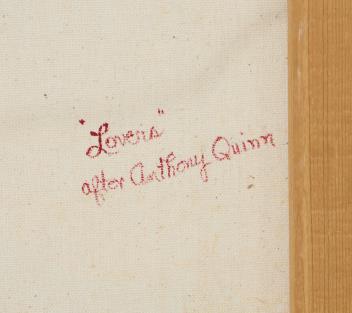 "Lovers"
after Anthony Quinn